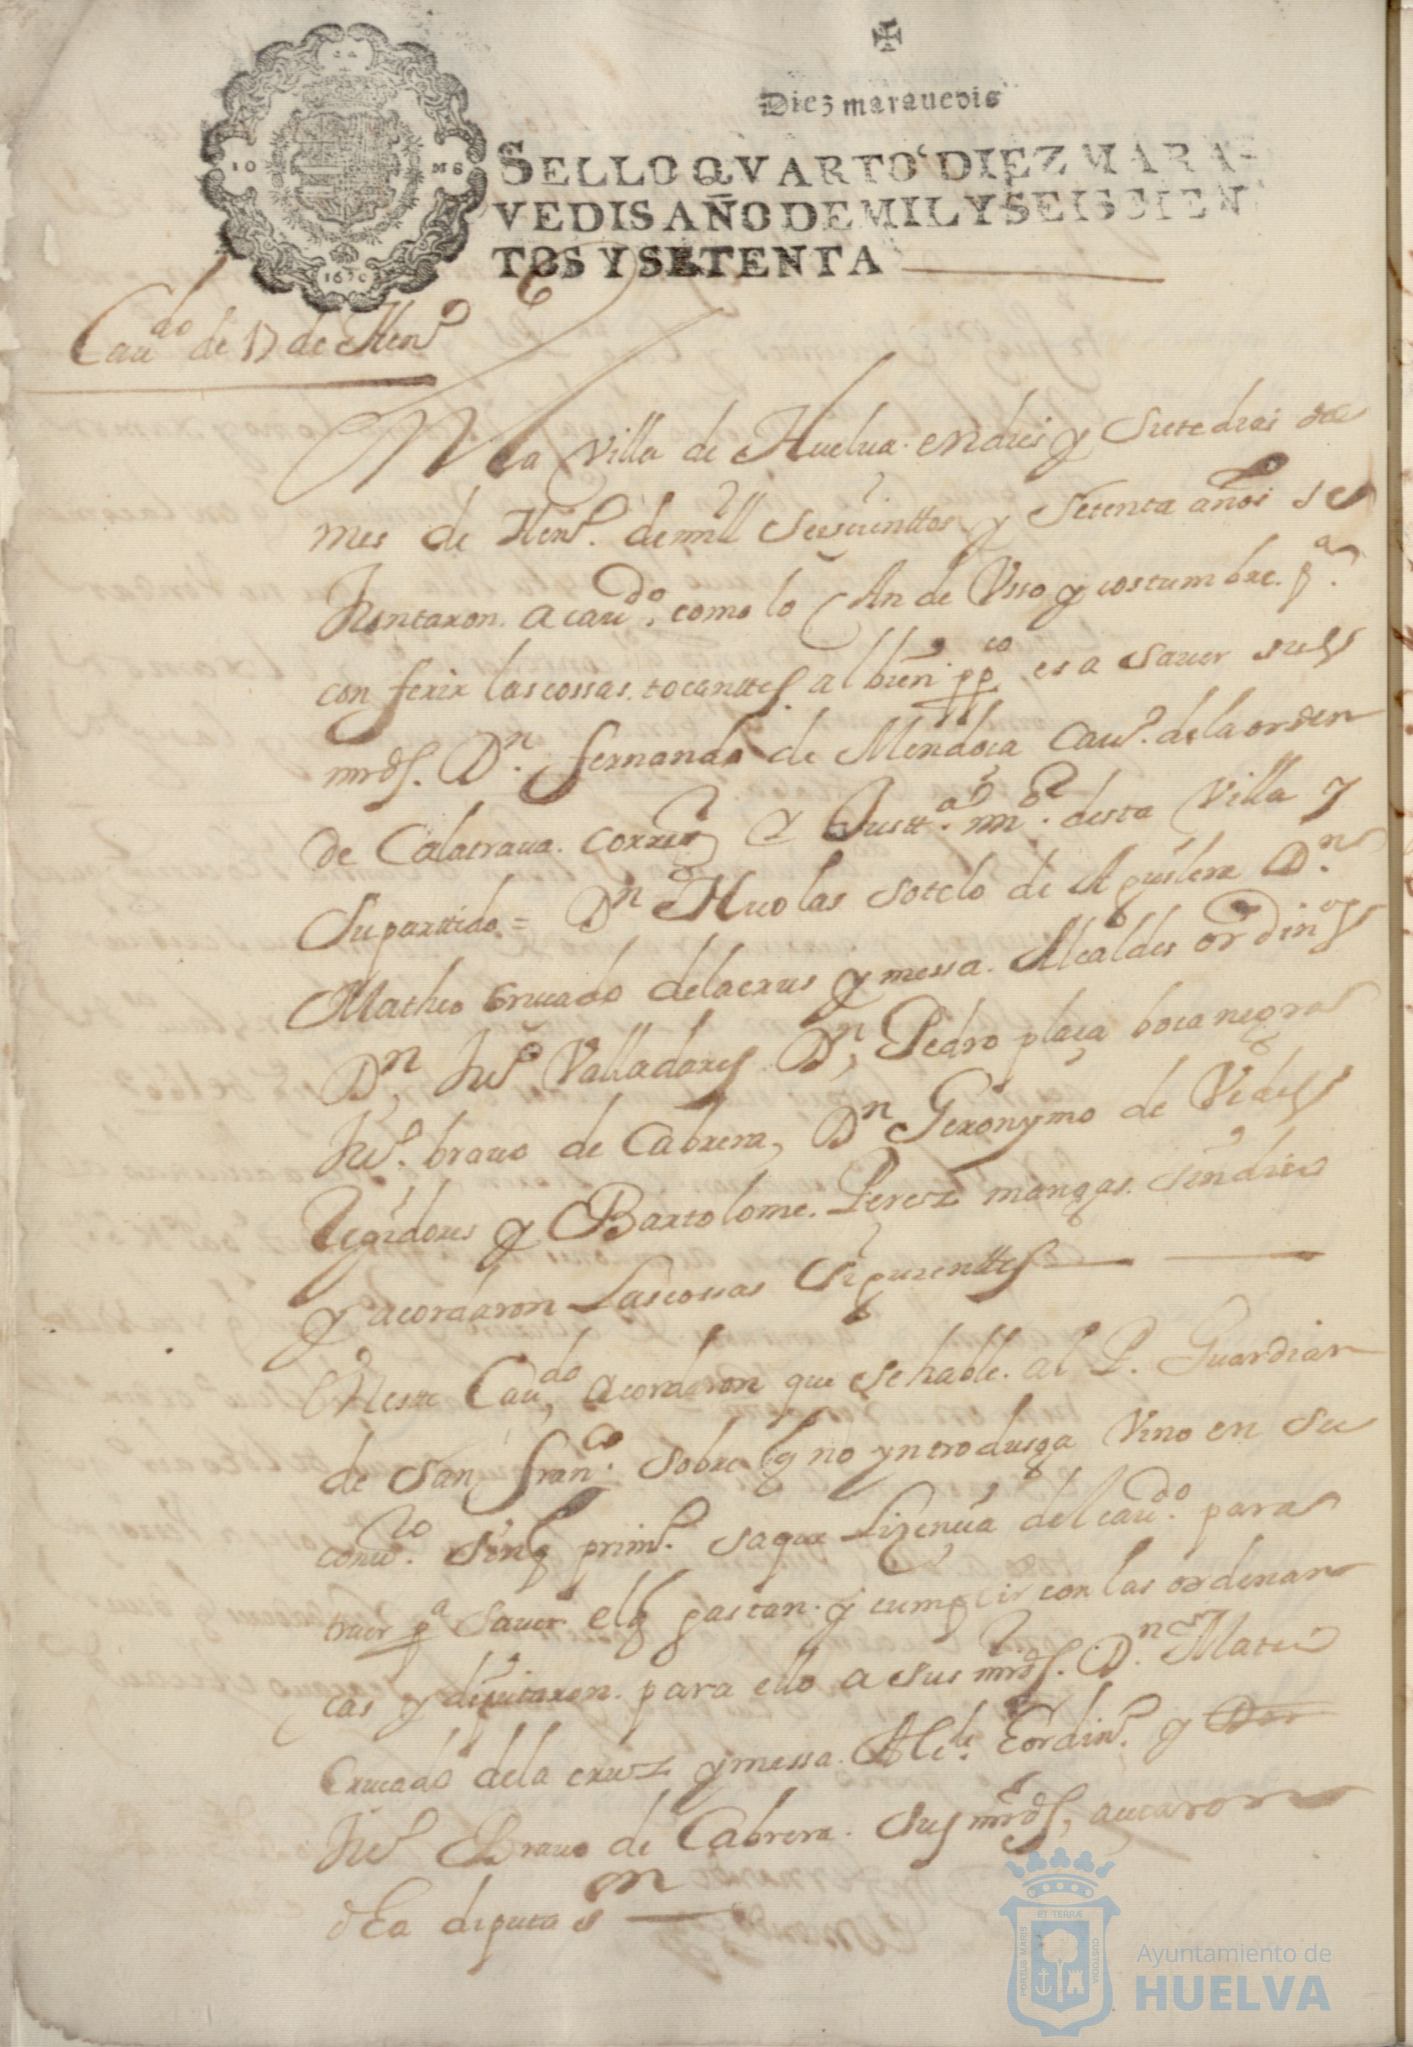 Diez maravedis
SELLO QVARTO DIEZ MARA-
VEDIS AÑO DE MIL Y SEISCIEN
TOS Y SETENTA
10 MS
1670
Caudo de 17 de Heno
En la Villa de Huelua. en dies y Siete dias de
mes de Heno. de mill Seiscienttos y Setenta años se
Juntaron. a caudo. como lo An de Vsso y costumbre. pa.
conferir las cossas. tocanttes. al bien ppco es a sauer sus
mrds. Dn. fernando de Mendoça Cauo. de la orden
de Calatraua. Correxor Y Justta. mor. desta Villa y
Su parttido = Dn Nicolas Sotelo de Aguilera Dn.
Matheo Crucado de la crus y messa. Alcaldes ordinos
Dn, Juo Valladares Dn, Pedro plaça bocanegra
Juo. brauo de Cabrera, Dn Geronymo de Vides
Regidores y Bartolome. Perez mangas. Sindico
y acordaron Las cossas Siguienttes
En este Caudo, acordaron que se hable. al P. Guardian
de San franco. sobre q no yntrodusga Vino en su
conuto. sin q primo. saque Lizençia del caudo. para
traer pa sauer el q gastan. y cumplir con las ordenan
cas y diputaron. para ello a sus mrds. Dn. Mateo
Crucado de la cruz y messa. Alcde. ordino. y Don
Juo Brauo de Cabrera. Sus mrds, acetaron
dha diputaon
PORTUS MARIS ET TERRÆ CUSTODIA
Ayuntamiento de
HUELVA